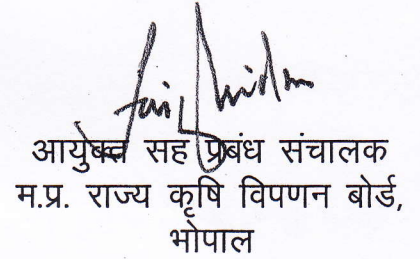 आयुक्त सह प्रबंध संचालक
म.प्र. राज्य कृषि विपणन बोर्ड,
भोपाल